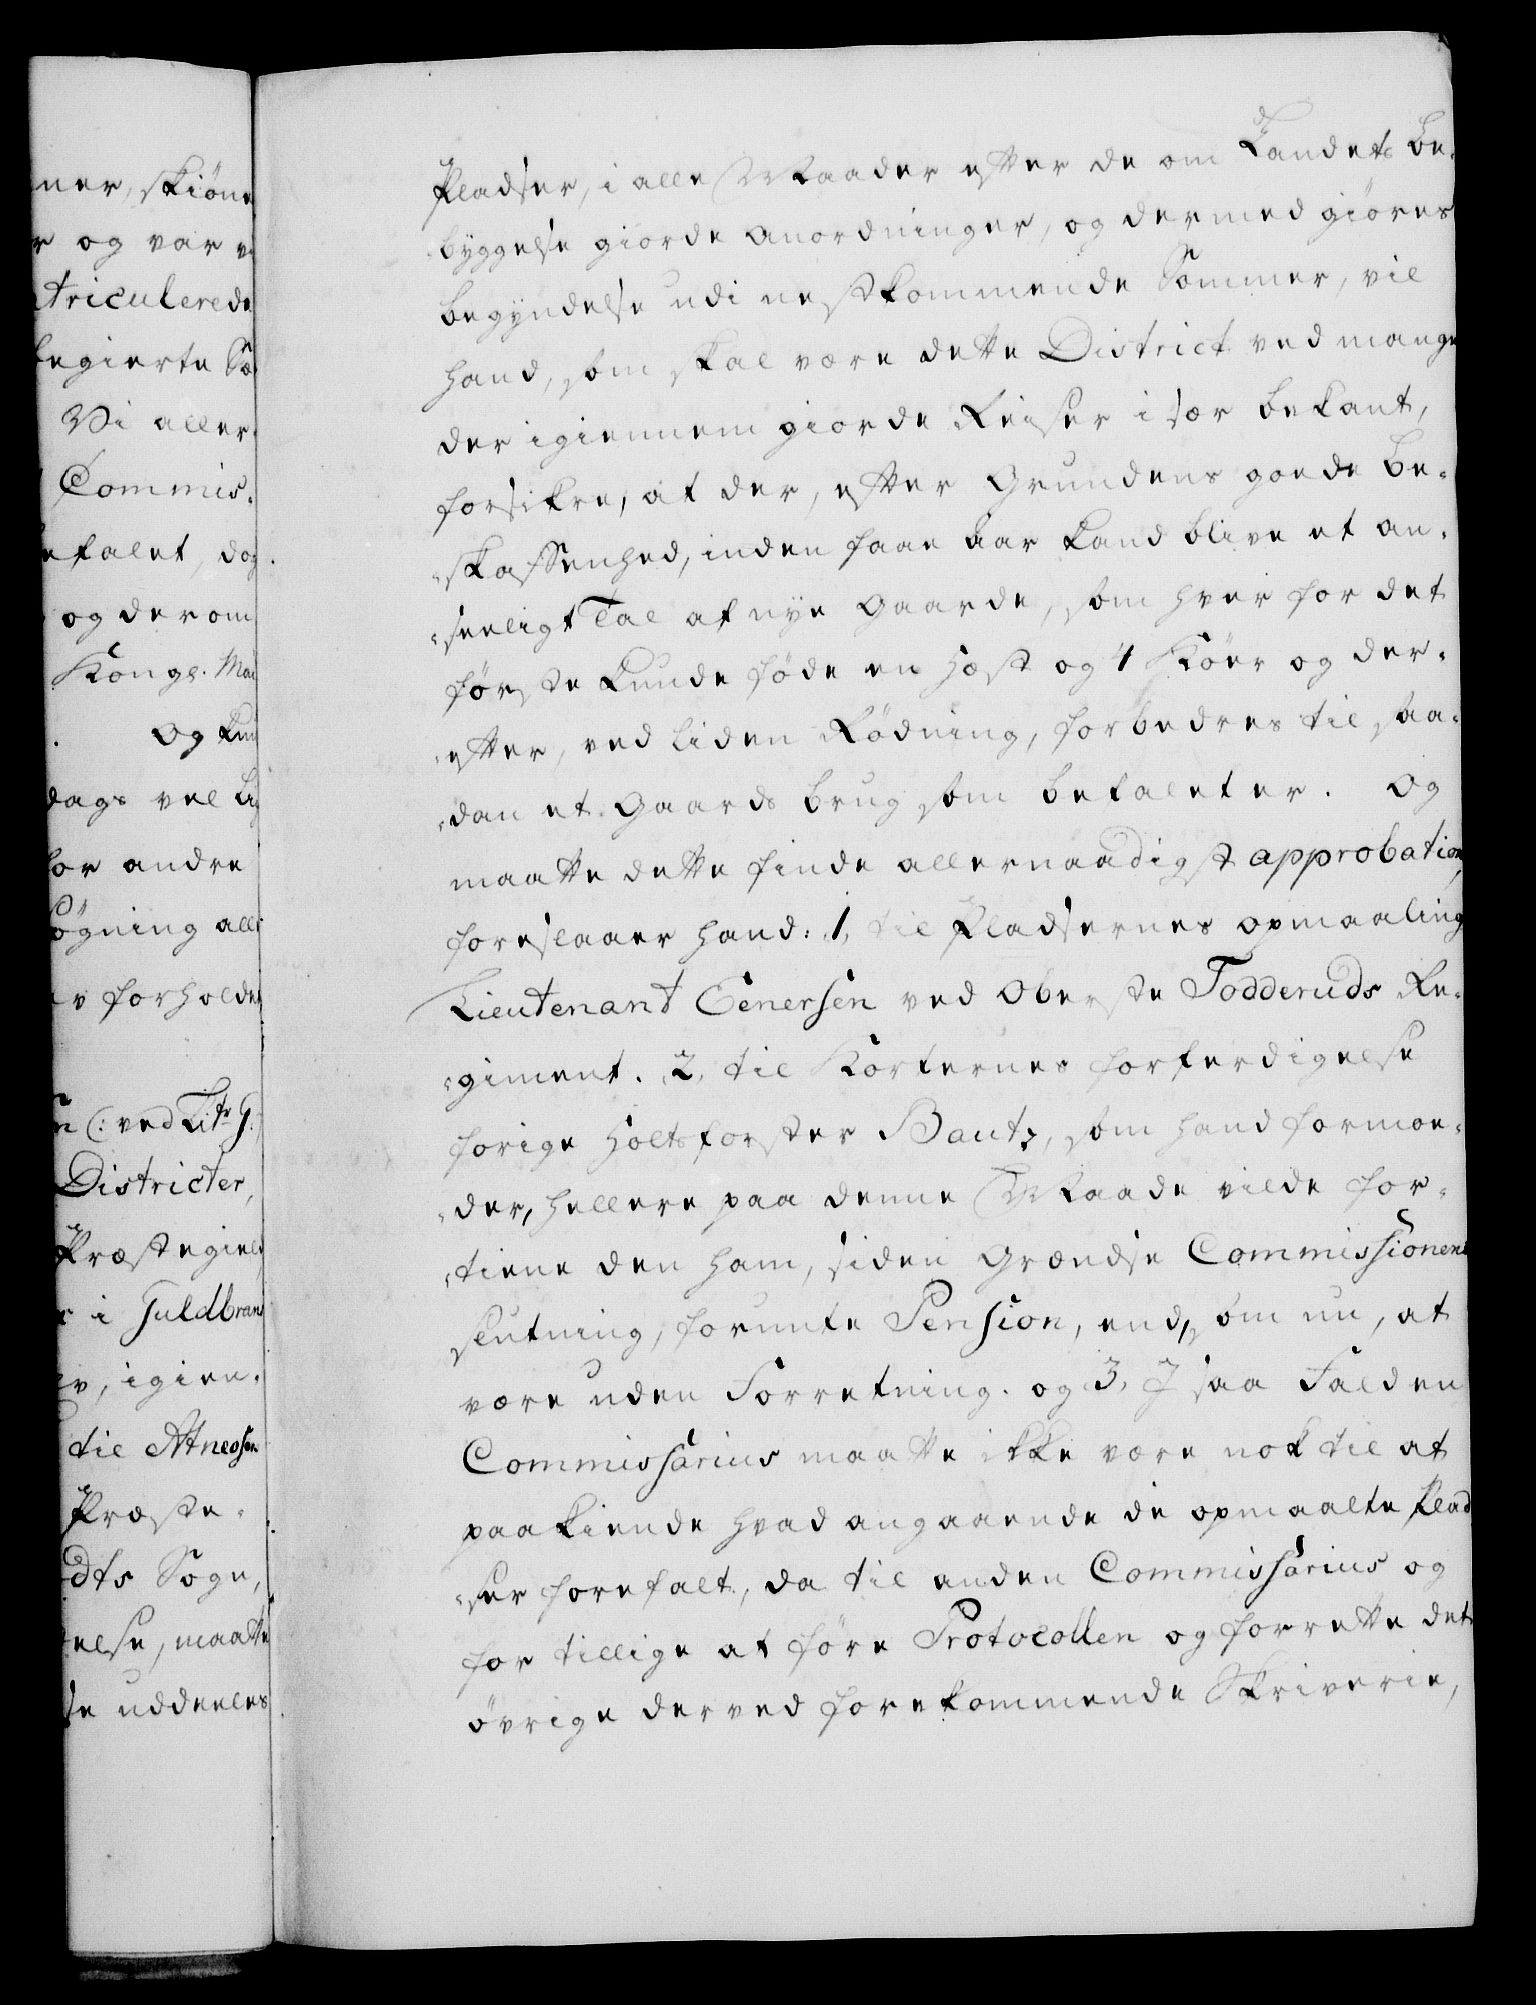 ner, skiöne
r og var
triculerede
begierte
Vi aller-
Commis-
efalet, dog
og derom
Kongl. Mai
Og kun
dags vel
for andre
søgning alle
forholde
(: ved Litr. G.
Districter,
Præstegield
i Guldbran
igien-
til Atneosen
Præste-
dts Sogn,
else, maatte
se uddeeles
Pladser, i alle Maader efter de om Landets be-
byggelse giorde Anordninger, og dermed giöres
begyndelse udi nestkommende Sommer, vil
hand, som skal være dette District ved mange
der igiennem giorde Reiser i sær bekant,
forsikre, at der, efter Grundens goede be-
skaffenhed, inden faae Aar kand blive et an-
seeligt Tal af nye Gaarde, som hver for det
første kunde føde en Hest og 4 Kiöer og der-
efter, ved liden Rödning, forbedres til saa-
dan et Gaards brug som befalet er. Og
maatte dette finde allernaadigst approbation,
foreslaaer hand: 1, til Pladsernes opmaaling
Lieutenant Eenersen ved Oberste Todderuds Re-
giment. 2, til Korternes forferdigelse
forige Holtsforster Bautz, som hand formoe-
der, hellere paa denne Maade vilde for-
tiene den ham, siden Grændse Commissionens
slutning, forunte Pension, end, som nu, at
være uden Forretning. og 3, J saa Fald en
Commissarius maatte ikke være nok til at
paakiende hvad angaaende de opmaalte Plad
ser forefalt, da til anden Commissarius og
for tillige at føre Protocollen og forrette det
övrige derved forekommende Skriverie,